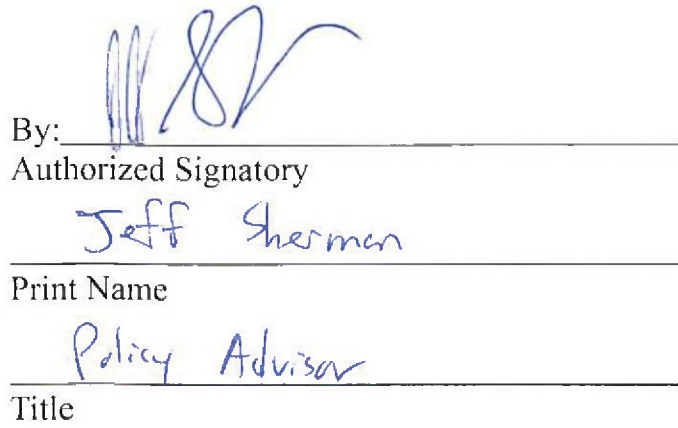 By:
Authorized Signatory
Jeff Sherman
Print Name
Policy Advisor
Title